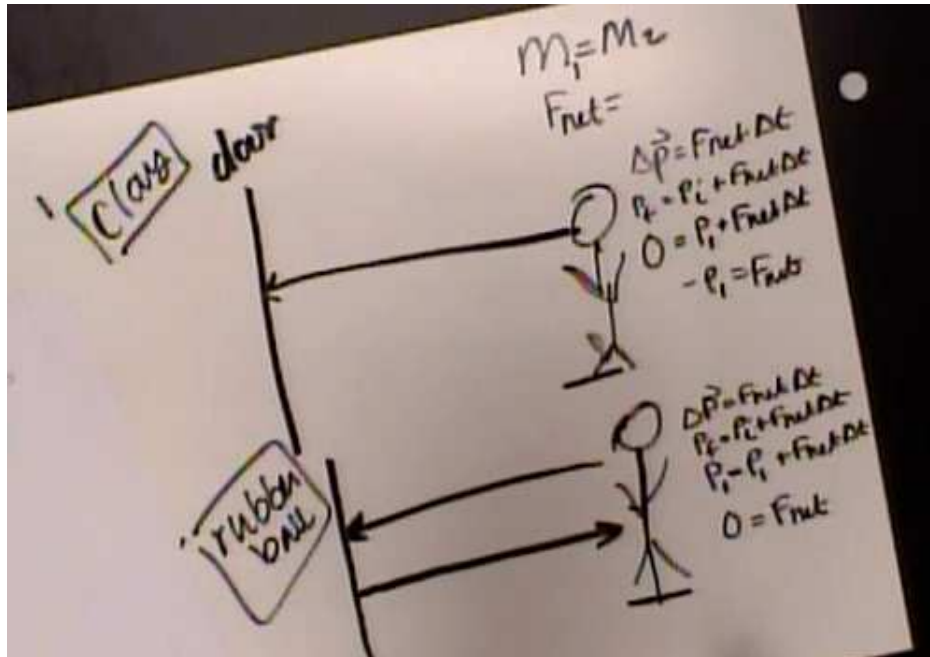 M₁=M₂
Fnet=
Clay
door
Δp⃗=Fnet Δt
Pf=Pi+FnetΔt
0=P₁+FnetΔt
-P₁=Fnet
rubber
ball
Δp⃗=FnetΔt
Pf=Pi+FnetΔt
P₁-P₁+FnetΔt
0=Fnet